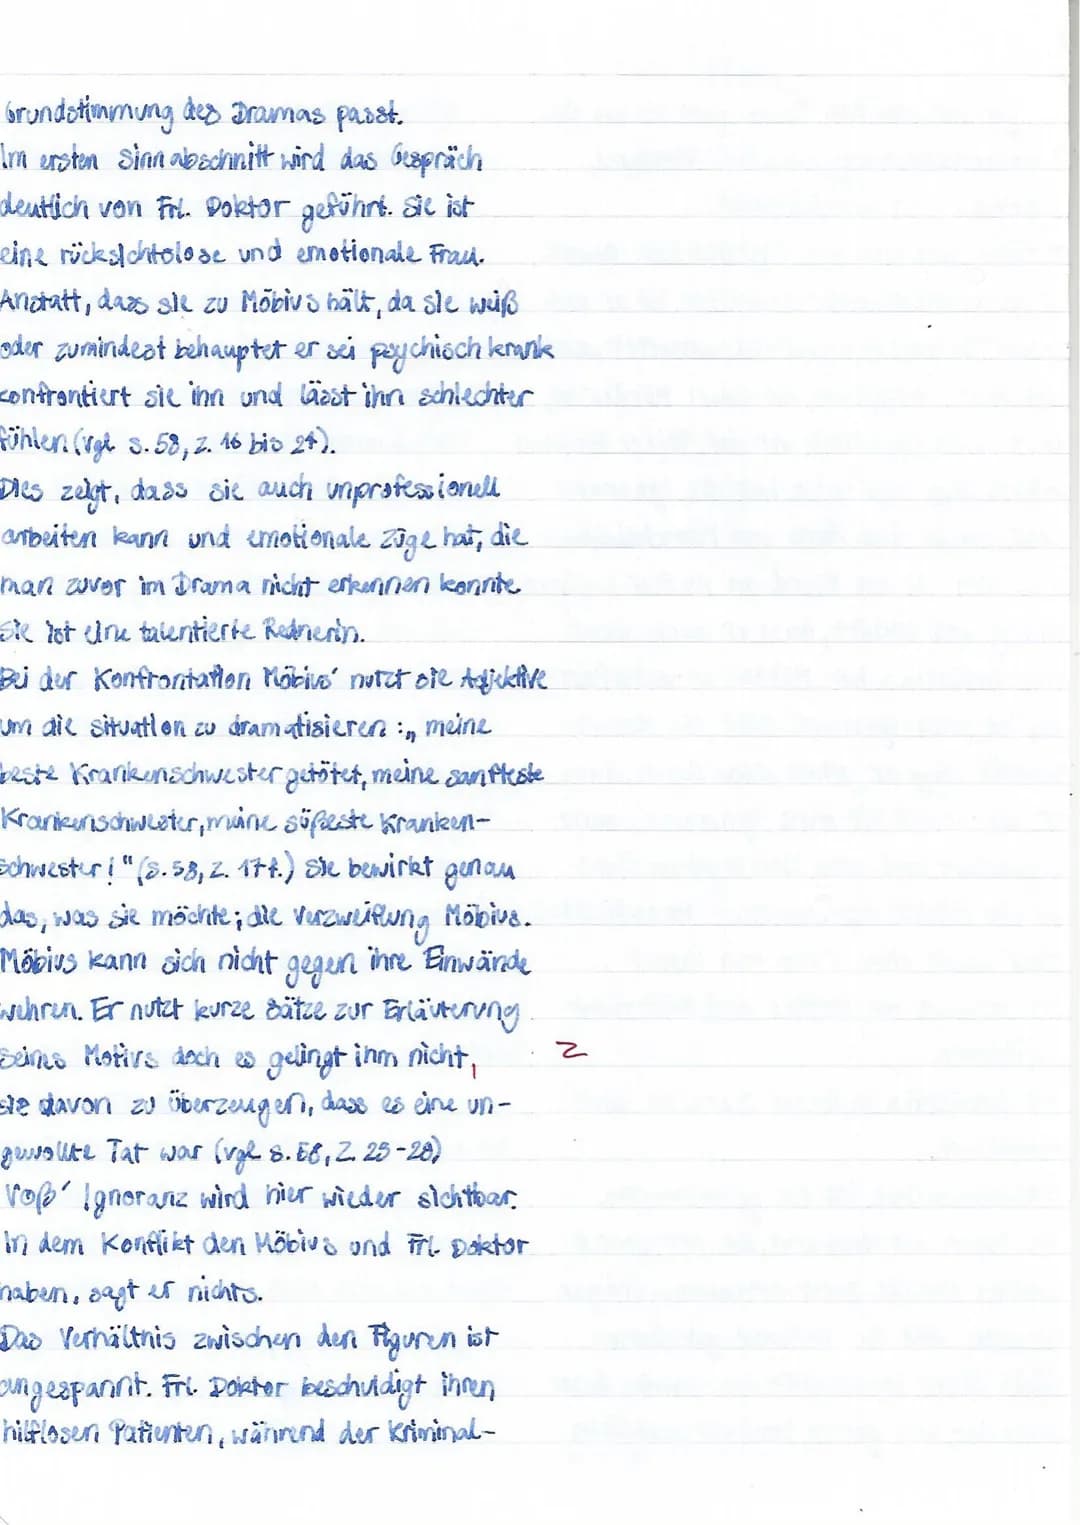 Grundstimmung des Dramas passt.
Im ersten Sinnabschnitt wird das Gespräch
deutlich von Frl. Doktor geführt. Sie ist
eine rücksichtslose und emotionale Frau.
Anstatt, dass sie zu Möbius hält, da sie weiß
oder zumindest behauptet er sei psychisch krank
konfrontiert sie ihn und lässt ihn schlechter
fühlen. (vgl s. 58, z. 16 bis 24).
Dies zeigt, dass sie auch unprofessionell
arbeiten kann und emotionale Züge hat, die
man zuvor im Drama nicht erkennen konnte.
Sie ist eine talentierte Rednerin.
Bei der Konfrontation Möbius' nutzt sie Adjektive
um die Situation zu dramatisieren: „meine
beste Krankenschwester getötet, meine sanfteste
Krankenschwester, meine süßeste Kranken-
schwester!" (S. 58, Z. 17f.) Sie bewirkt genau
das, was sie möchte; die Verzweiflung Möbius.
Möbius kann sich nicht gegen ihre Einwände
wehren. Er nutzt kurze Sätze zur Erläuterung
seines Motivs doch es gelingt ihm nicht, Z
sie davon zu überzeugen, dass es eine un-
gewollte Tat war (vgl s. 58, Z 25-28)
Voß' Ignoranz wird hier wieder sichtbar.
In dem Konflikt den Möbius und Frl. Doktor
haben, sagt er nichts.
Das Verhältnis zwischen den Figuren ist
angespannt. Frl. Doktor beschuldigt ihren
hilflosen Patienten, während der Kriminal-